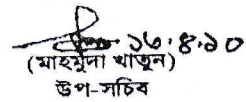 ১৬.৪.১০
(মাহমুদা খাতুন)
উপ-সচিব